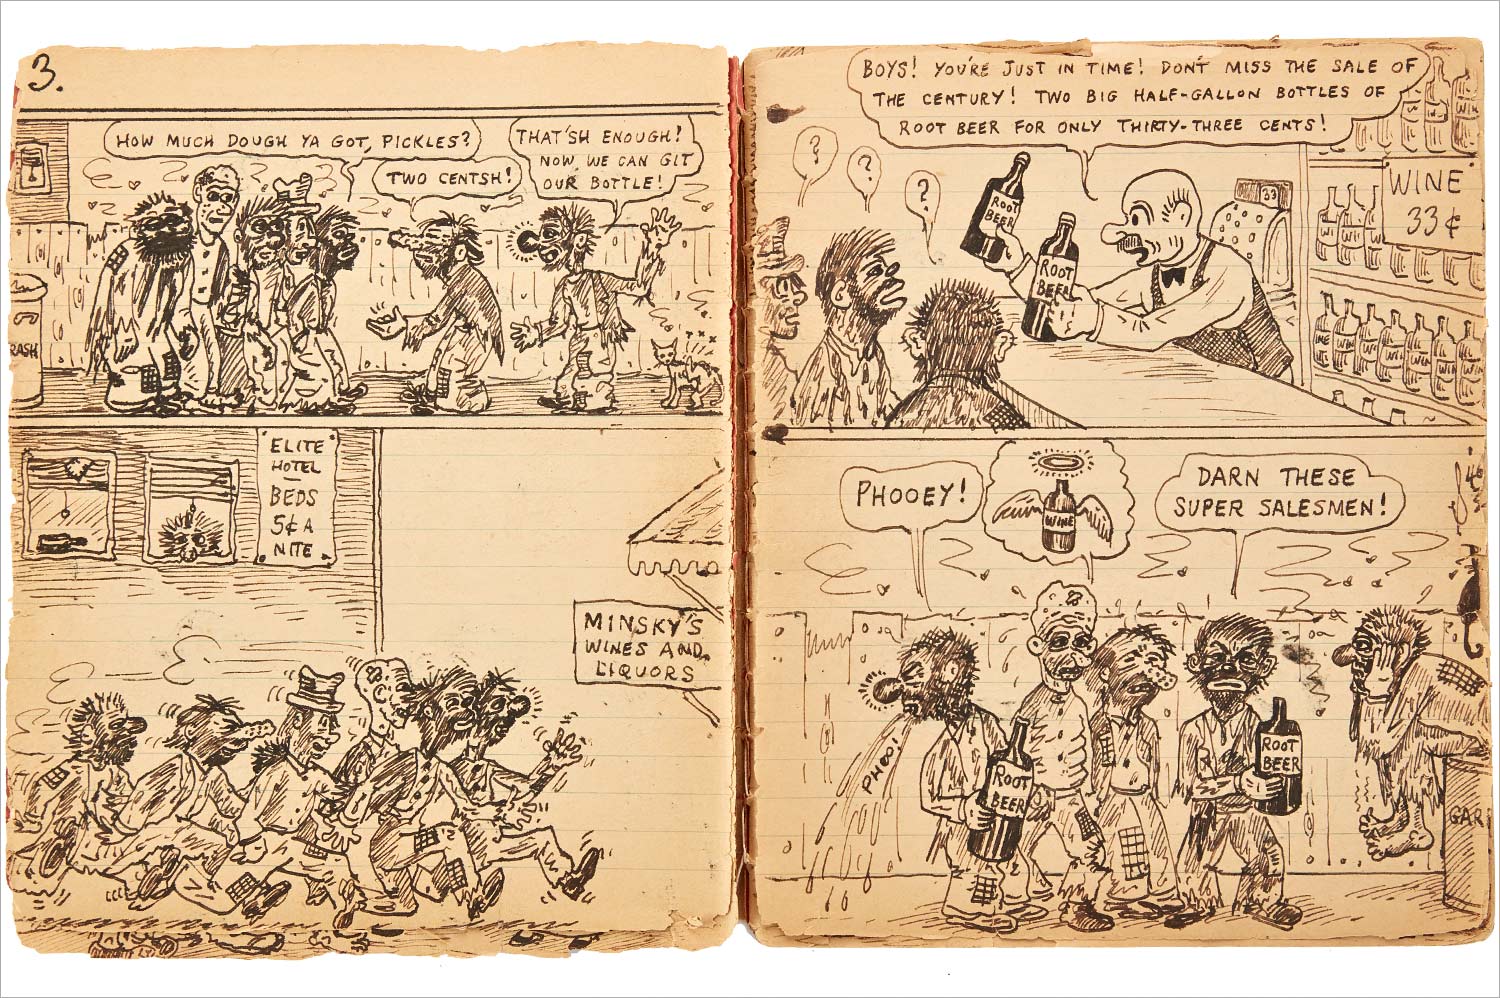 3.
HOW MUCH DOUGH YA GOT, PICKLES?
TWO CENTSH!
THAT'SH ENOUGH!
NOW, WE CAN GIT
OUR BOTTLE!
RASH
ELITE
HOTEL
BEDS
5¢ A
NITE
MINSKY'S
WINES AND
LIQUORS
BOYS! YOU'RE JUST IN TIME! DON'T MISS THE SALE OF
THE CENTURY! TWO BIG HALF-GALLON BOTTLES OF
ROOT BEER FOR ONLY THIRTY-THREE CENTS!
?
?
?
ROOT
BEER
ROOT
BEER
33
WINE
33¢
PHOOEY!
WINE
DARN THESE
SUPER SALESMEN!
PHOOI
ROOT
BEER
ROOT
BEER
GAR